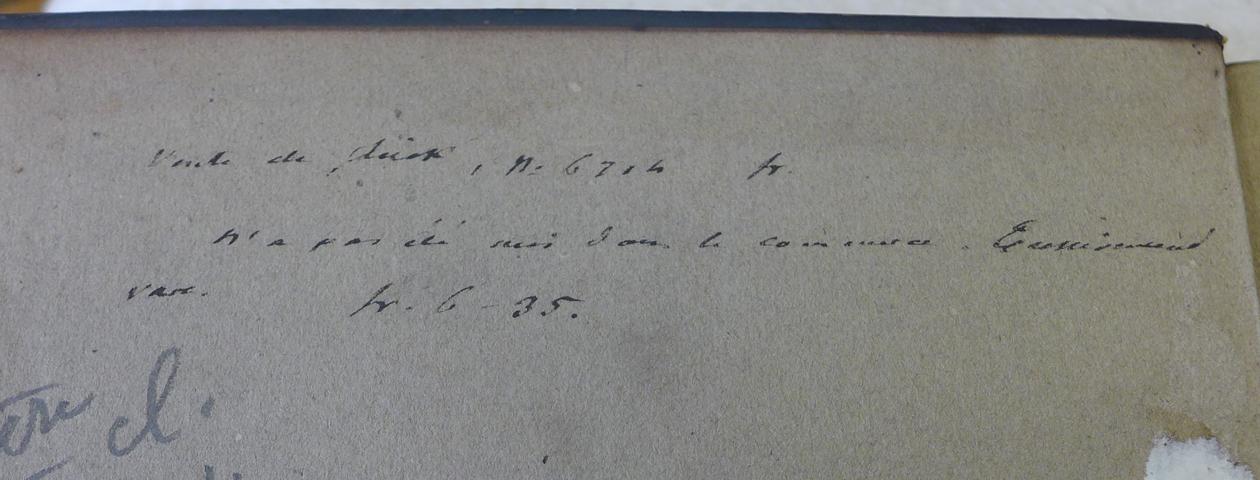 Vente de , No 6704 fr.
N'a pas été mis dans le commerce. Excessivement
rare. fr. 6-35.
cl.